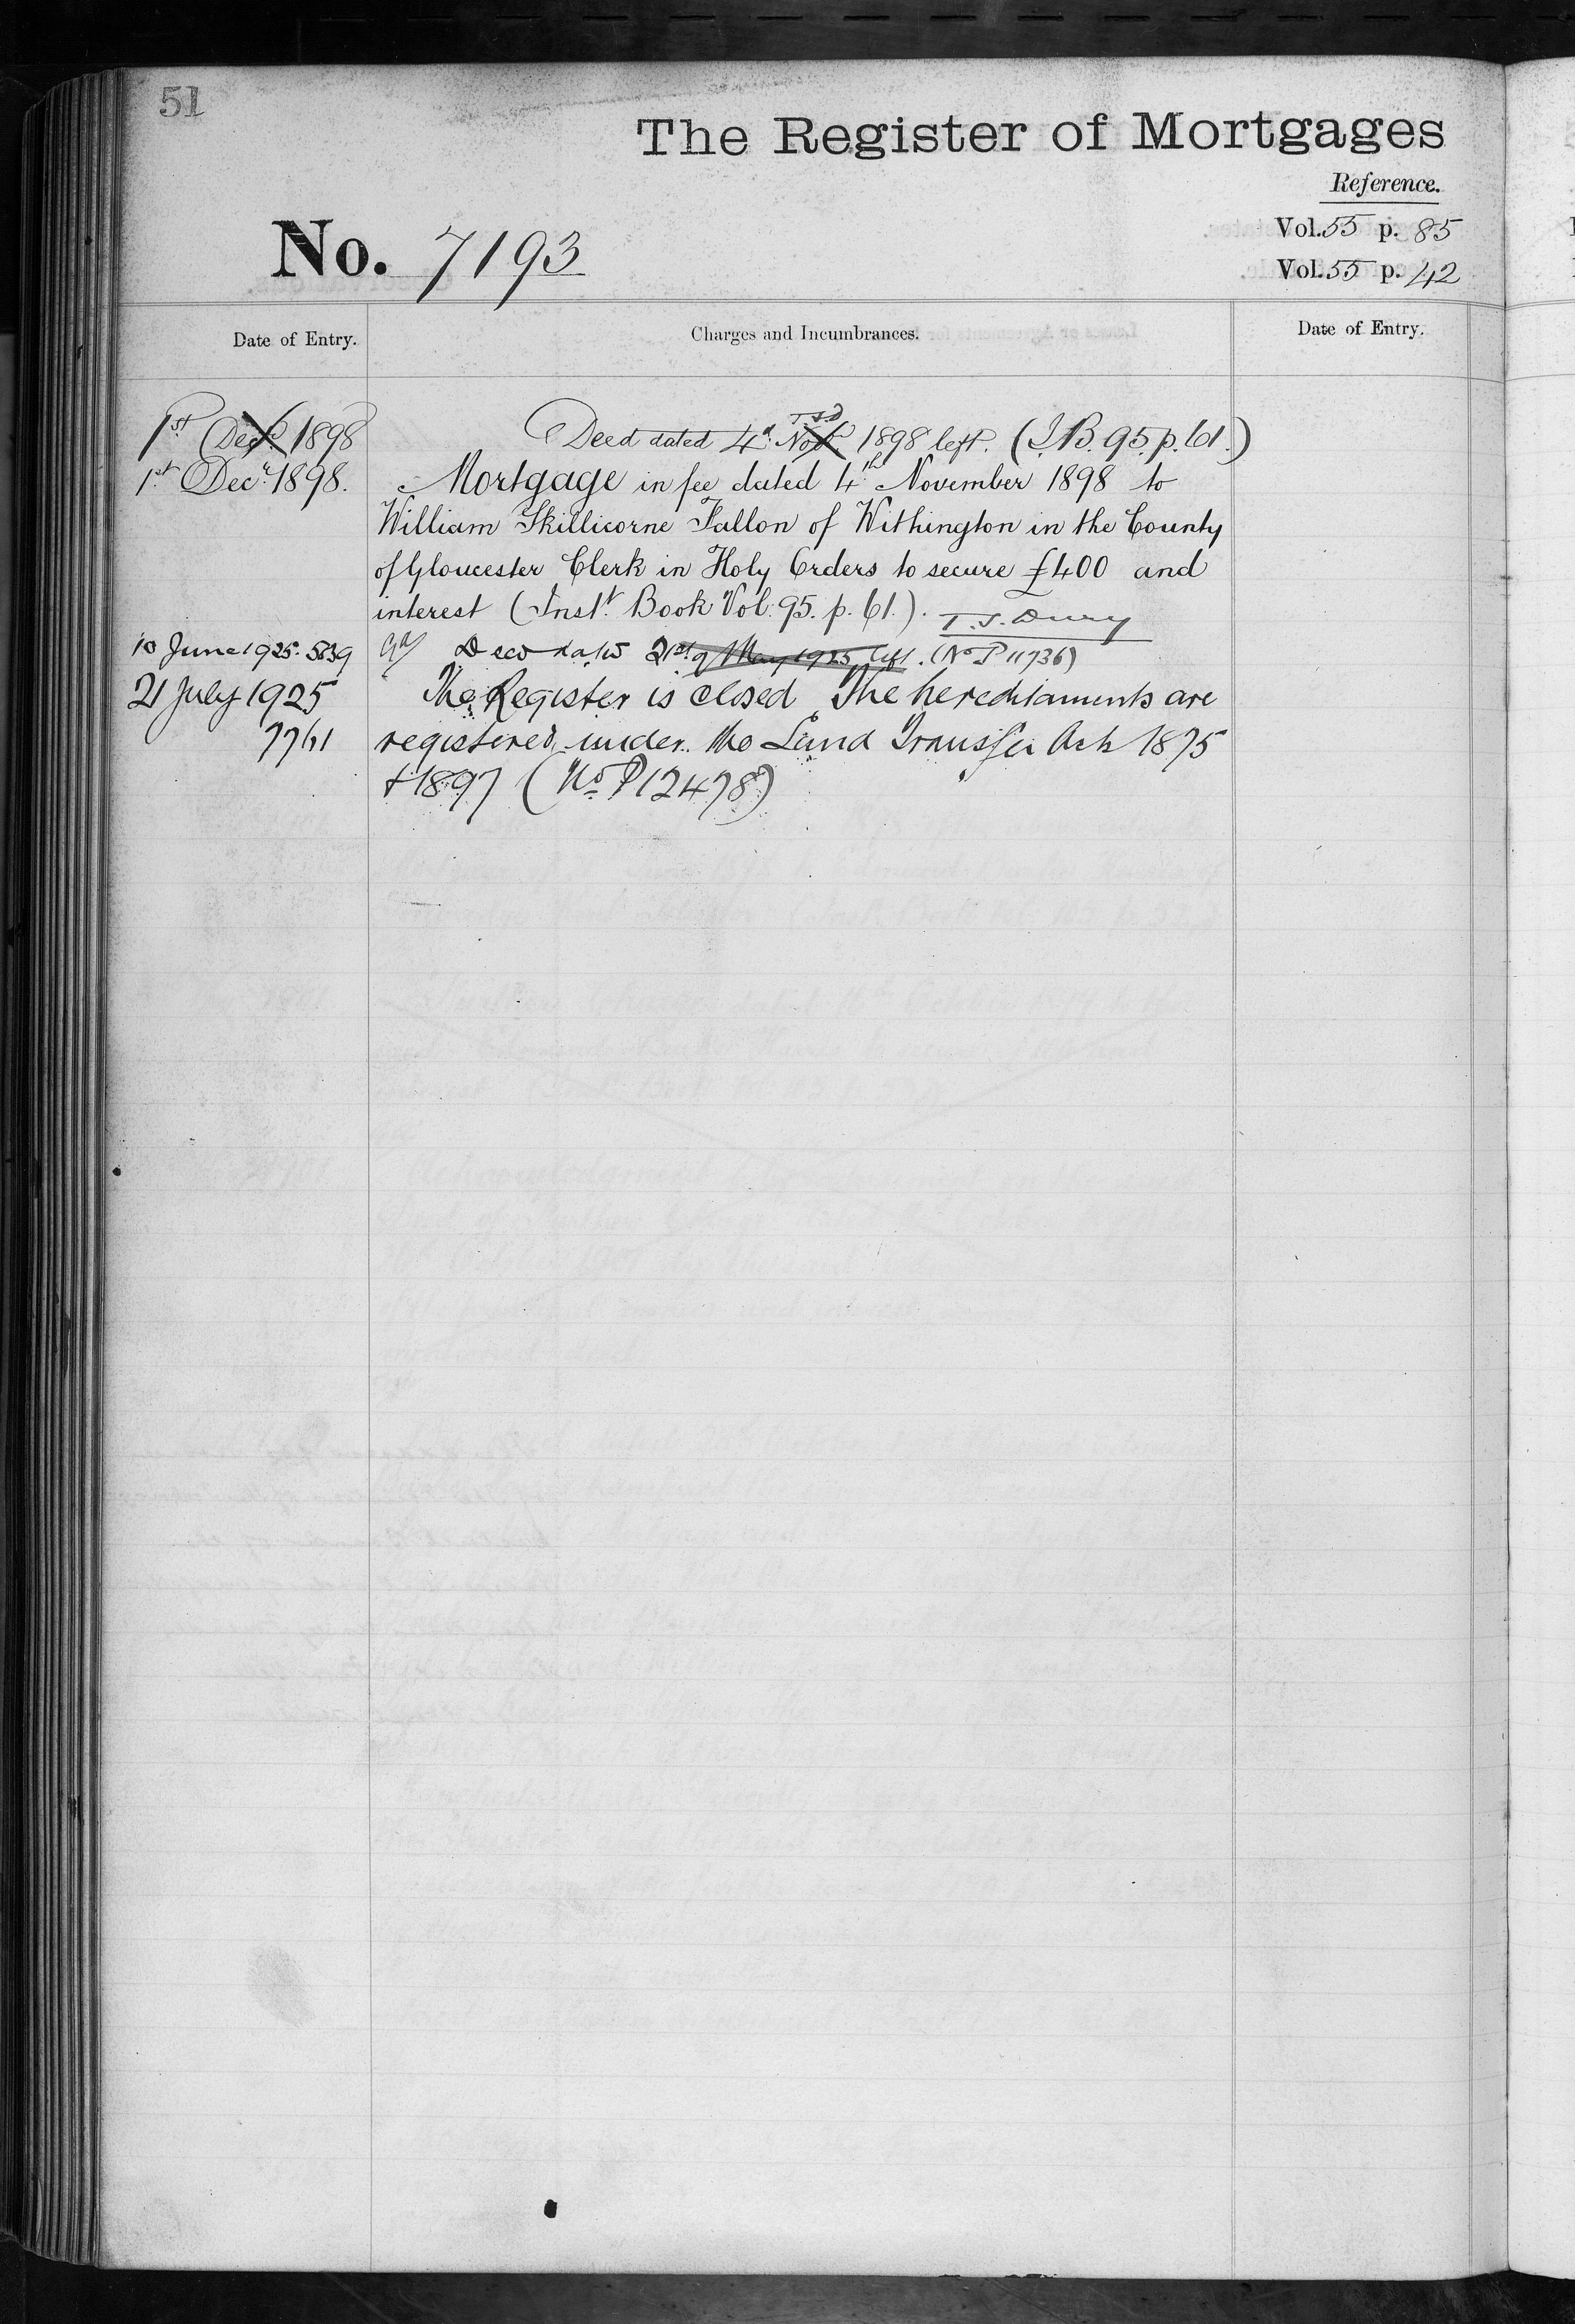 51
The Register of Mortgages
Reference.
No. 7193
Vol. 55 p. 85
Vol. 55 p. 42
Date of Entry.
Charges and Incumbrances.
Date of Entry.
1st Decr 1898
T.S.D
Deed dated 4th Novr 1898 left. (I.B. 95. p. 61.)
1st Decr 1898.
Mortgage in fee dated 4th November 1898 to
William Skillicorne Fallon of Withington in the County
of Gloucester Clerk in Holy Orders to secure £400 and
interest (Instt. Book Vol. 95. p. 61.). T. S. Drury
10 June 1925. 5839
Deed dated 21st of May 1925 left. (No P 11736)
21 July 1925
The Register is closed The hereditaments are
7761
registered under the Land Transfer Acts 1875
& 1897 (No. P12478)